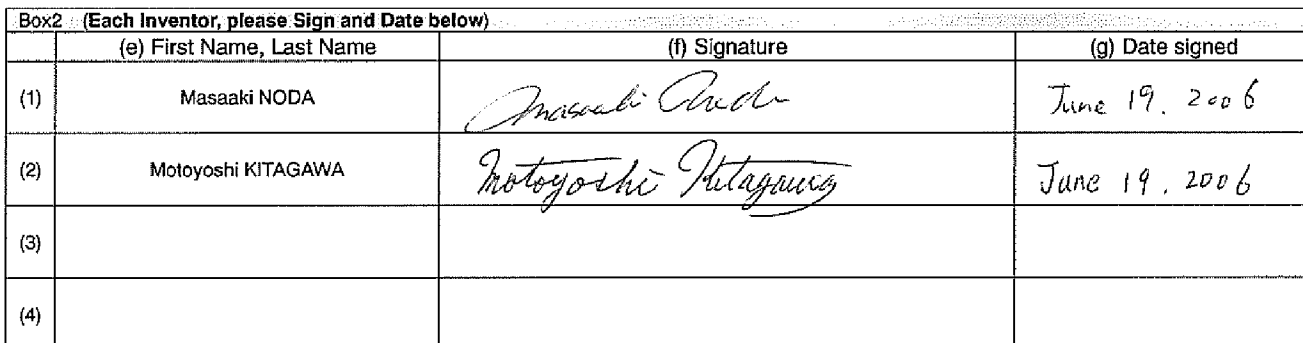 Box2 (Each Inventor, please Sign and Date below)
(e) First Name, Last Name (f) Signature (g) Date signed
(1) Masaaki NODA Masaaki Noda June 19. 2006
(2) Motoyoshi KITAGAWA Motoyoshi Kitagawa June 19. 2006
(3)
(4)